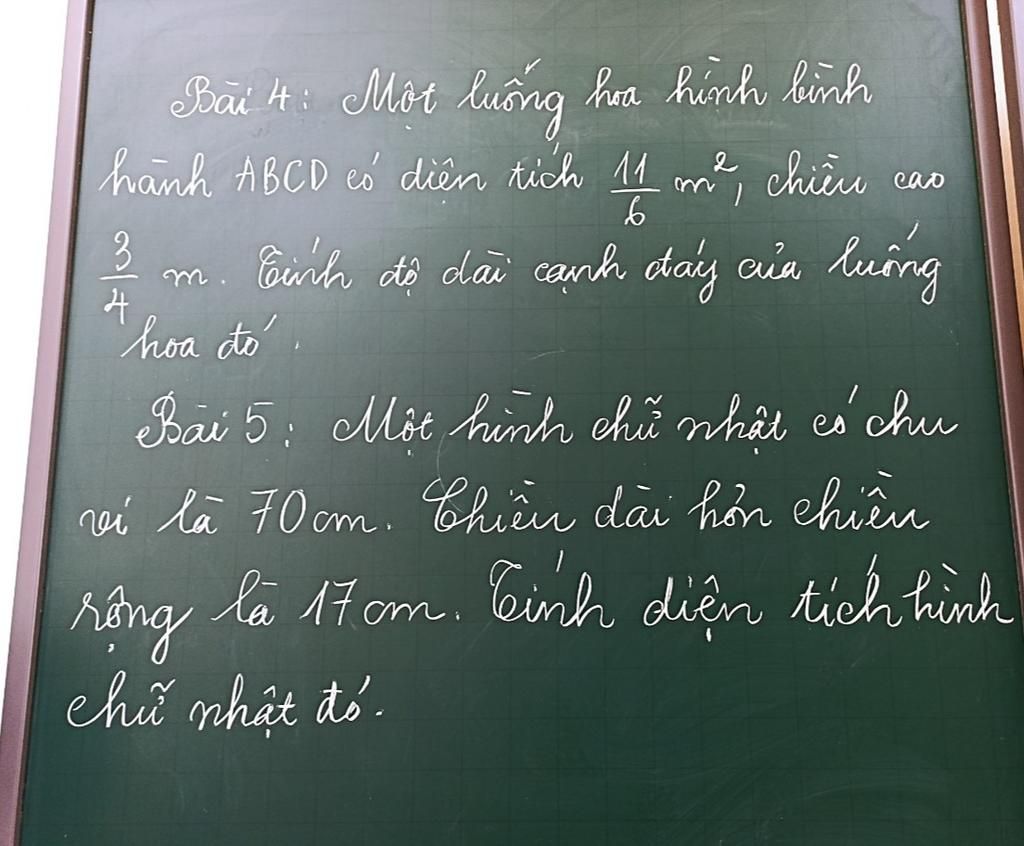 Bài 4: Một luống hoa hình bình
hành ABCD có diện tích 11/6 m², chiều cao
3/4 m. Tính độ dài cạnh đáy của luống
hoa đó.
Bài 5: Một hình chữ nhật có chu
vi là 70cm. Chiều dài hơn chiều
rộng là 17cm. Tính diện tích hình
chữ nhật đó.